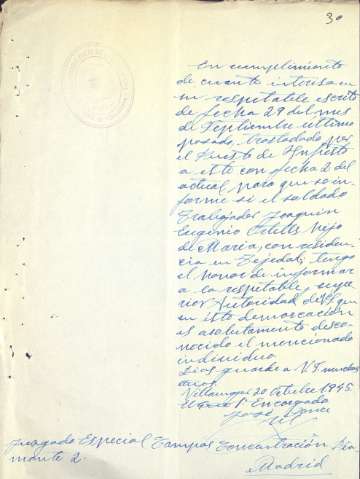 30
En cumplimiento
de cuanto interesa en
su respetable escrito
de fecha 29 del mes
de Septiembre último
pasado, trasladado por
el Puesto de Infiesto
a este con fecha 2 del
actual, para que se in-
forme si el soldado
Trabajador Joaquin
Eugenio hijo
de María, con residen-
cia en Tejedal; tengo
el honor de informar
a la respetable, supe-
rior Autoridad de V. que
en esta demarcación
es absolutamente desco-
nocido el mencionado
individuo.
Dios guarde a V. muchos
años.
Villamayor 20 Octubre 1945
El Encargado
José
Juzgado Especial Campos Concentración
monte 2.
Madrid